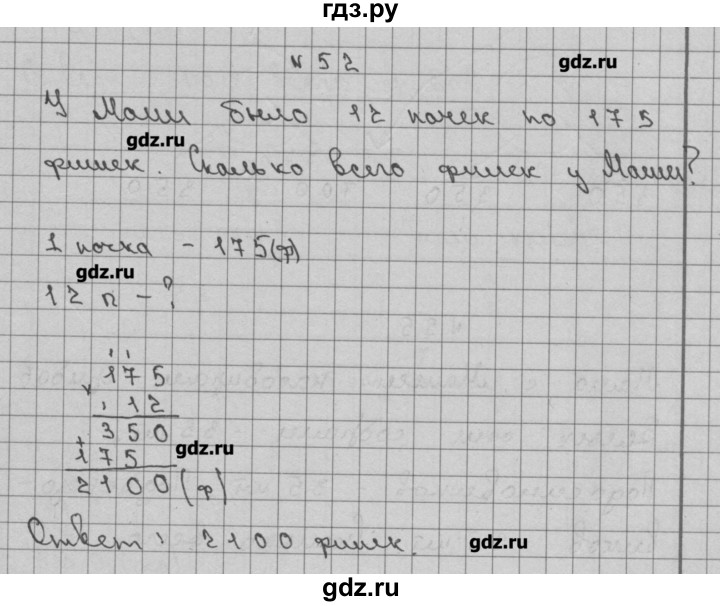 гдз.ру
№ 52
gdz.ru
У Маши было 12 пачек по 175
gdz.ru
фишек. Сколько всего фишек у Маши?
1 пачка - 175(ф)
gdz.ru
12 п - ?
1 1
175
×
12
350
+
175
gdz.ru
2100(ф)
Ответ: 2100 фишек.
gdz.ru
gdz.ru